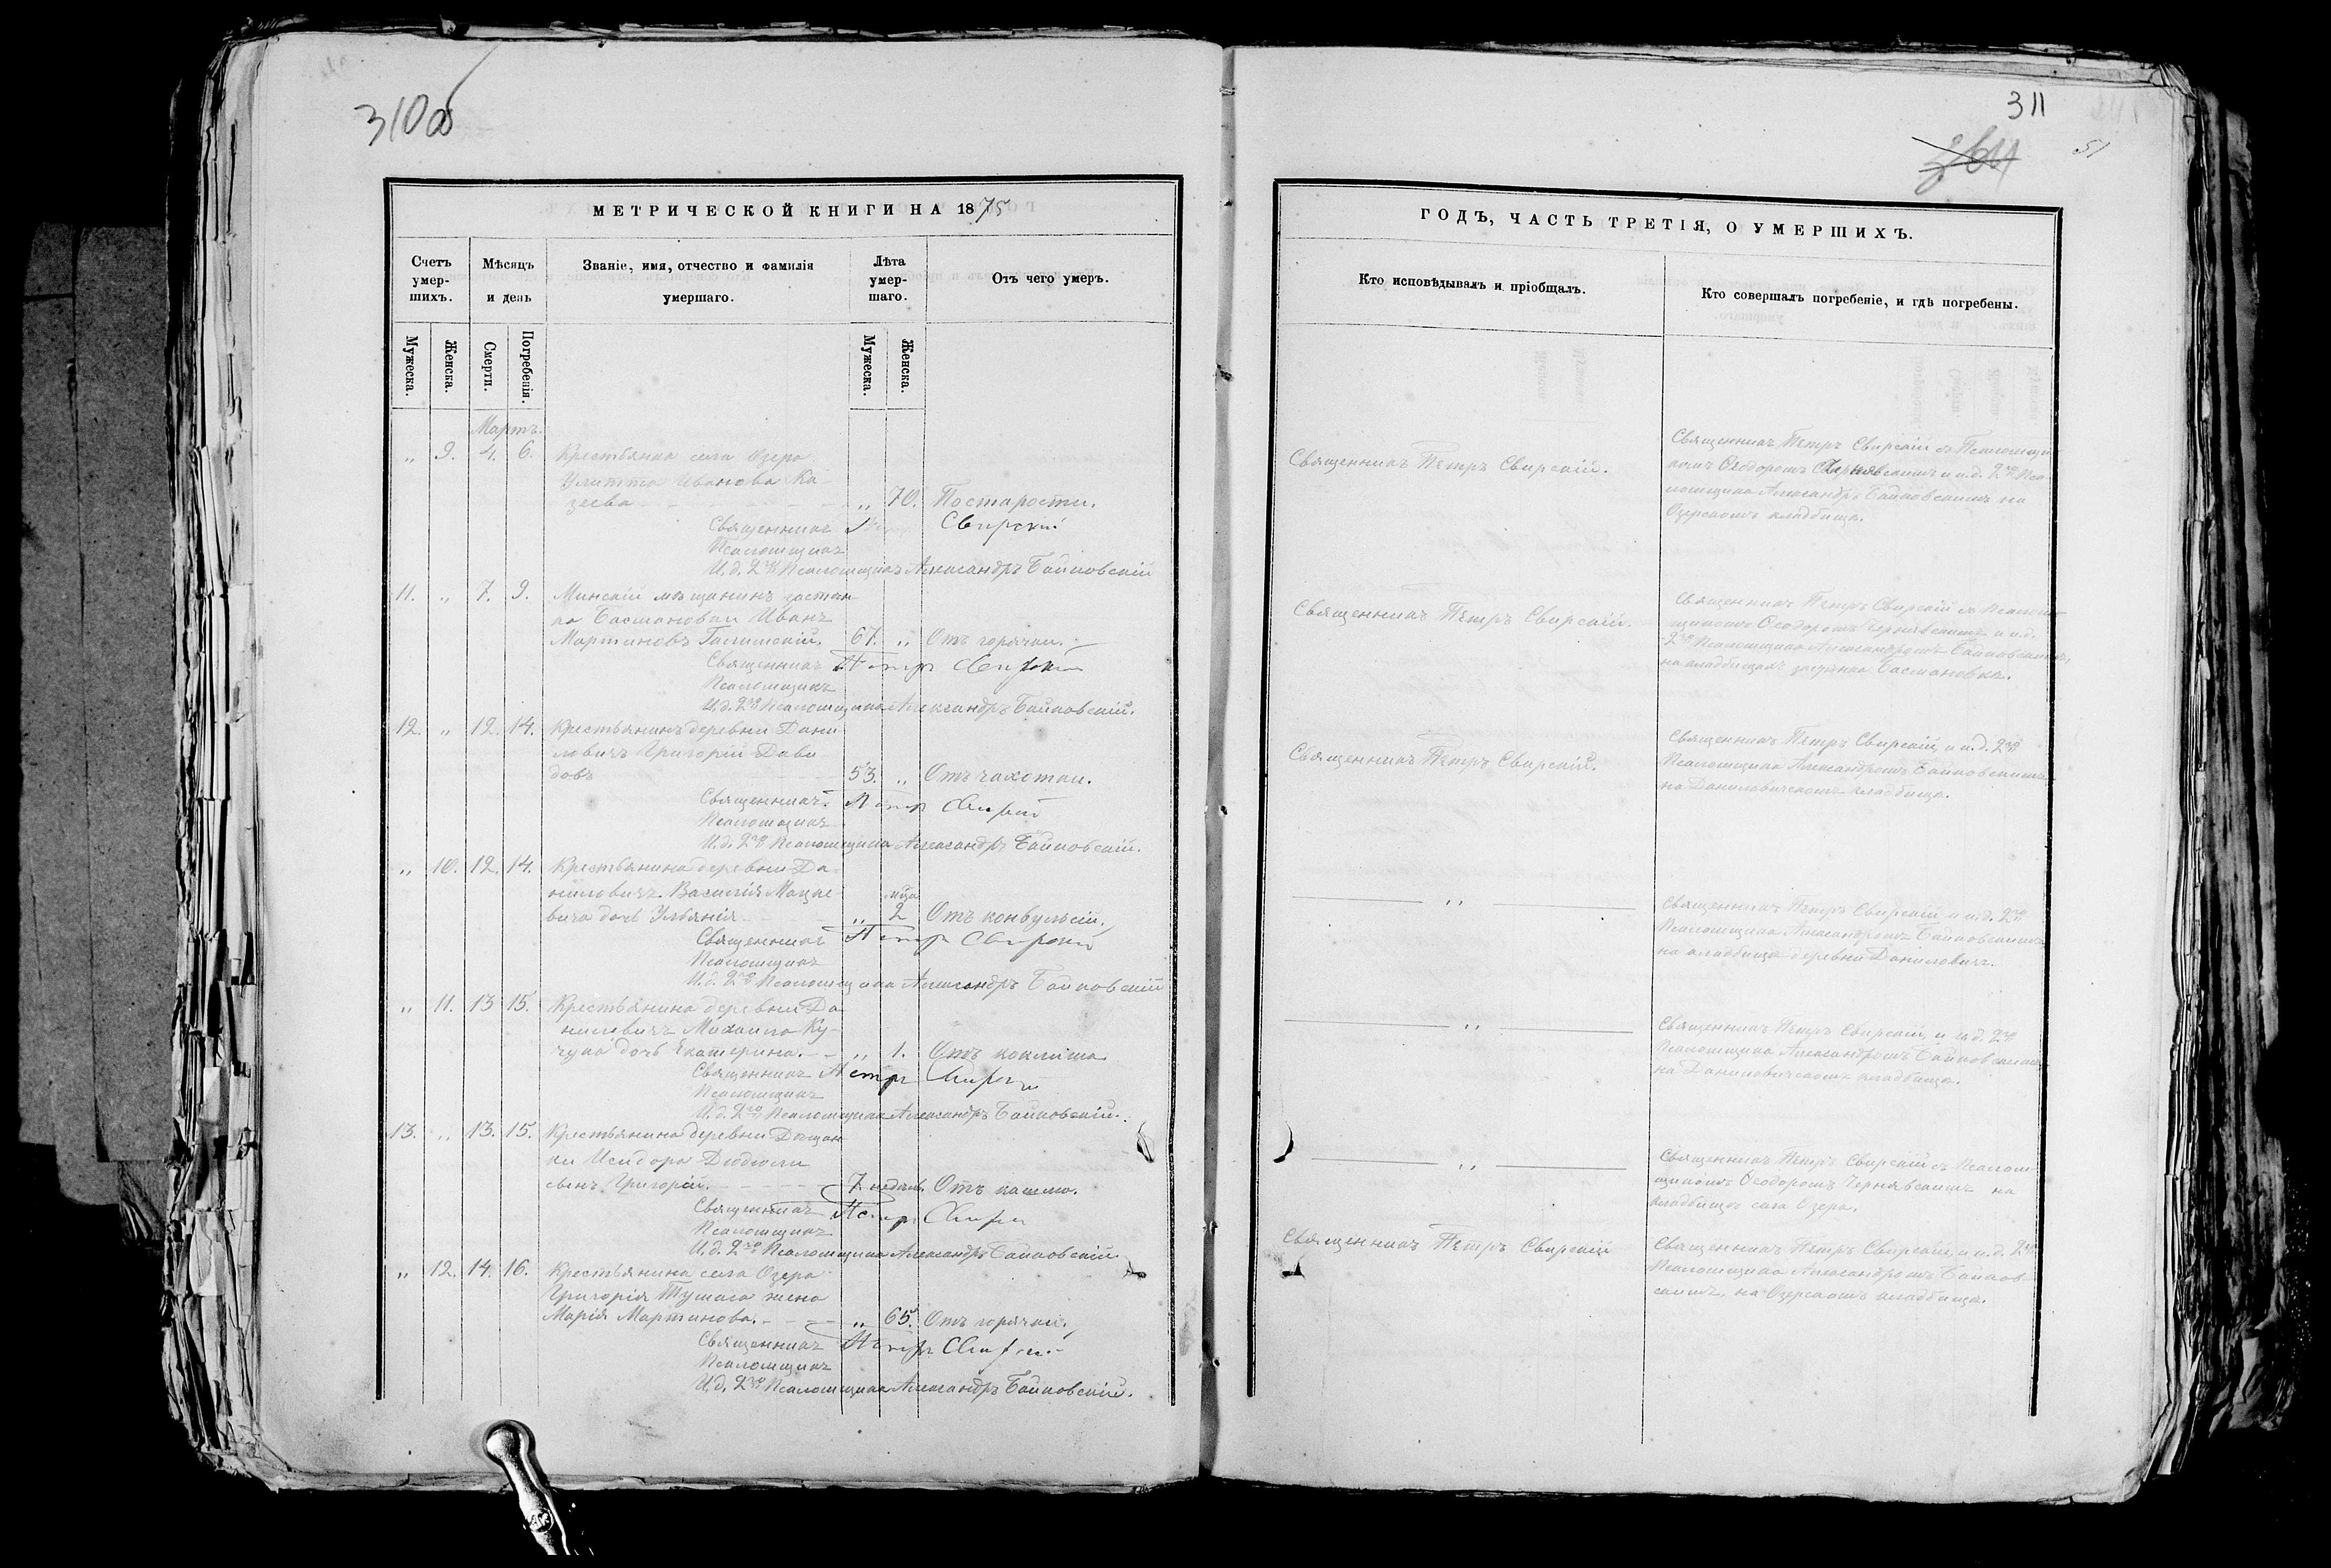 310об
МЕТРИЧЕСКОЙ КНИГИ НА 1875
Счетъ умер-шихъ.
Мѣсяцъ и день
Званіе, имя, отчество и фамилія умершаго.
Лѣта умер-шаго.
Отъ чего умеръ.
Мужеска.
Женска.
Смерти.
Погребенія.
Мужеска.
Женска.
Мартъ.
„ 9. 4. 6. Крестьянка села Озера
Улитта Иванова Ка-
зеева „ 70. По старости.
Священникъ Свирскій
Псаломщикъ
И.д. 2го Псаломщика Александръ Байковскій
11. „ 7. 9. Минскій мѣщанинъ застѣн-
ка Басмановки Иванъ
Мартиновъ 67. „ Отъ горячки.
Священникъ Петръ Свирскій
Псаломщикъ
И.д. 2го Псаломщика Александръ Байковскій.
12. „ 12. 14. Крестьянинъ деревни Дани-
ловичъ Григорій Дави-
довъ 53. „ Отъ чахотки.
Священникъ Петръ Свирскій
Псаломщикъ
И.д. 2го Псаломщика Александръ Байковскій.
„ 10. 12. 14. Крестьянина деревни Да-
ниловичъ Василія Мацке-
вича дочь Ульянія „ мца 2 Отъ конвульсій.
Священникъ Петръ Свирскій
Псаломщикъ
И.д. 2го Псаломщика Александръ Байковскій
„ 11. 13 15. Крестьянина деревни Да-
ниловичъ Михаила Ку-
чука дочь Екатерина. „ 1. Отъ коклюша
Священникъ Петръ Свирскій
Псаломщикъ
И.д. 2го Псаломщика Александръ Байковскій.
13. „ 13. 15. Крестьянина деревни
ки Исидора Дюдюли
сынъ Григорій. 7 недѣль. Отъ кашлю.
Священникъ Петръ Свирскій
Псаломщикъ
И.д. 2го Псаломщика Александръ Байковскій.
„ 12. 14. 16. Крестьянина села Озера
Григорія жена
Марія Мартинова. „ 65. Отъ горячки.
Священникъ Петръ Свирскій
Псаломщикъ
И.д. 2го Псаломщика Александръ Байковскій.
311
51
ГОДЪ, ЧАСТЬ ТРЕТІЯ, О УМЕРШИХЪ.
Кто исповѣдывалъ и пріобщалъ.
Кто совершалъ погребеніе, и гдѣ погребены.
Священникъ Петръ Свирскій.
Священникъ Петръ Свирскій съ Псаломщи-
комъ Ѳеодоромъ Чернявскимъ и и.д. 2го Пса-
ломщика Александръ Байковскимъ на
Озерскомъ кладбищѣ.
Священникъ Петръ Свирскій.
Священникъ Петръ Свирскій съ Псалом-
щикомъ Ѳеодоромъ Чернявскимъ и и.д.
2го Псаломщика Александромъ Байковскимъ,
на кладбищахъ застѣнка Басмановка.
Священникъ Петръ Свирскій.
Священникъ Петръ Свирскій и и.д. 2го
Псаломщика Александромъ Байковскимъ
на Даниловичскомъ кладбищѣ.
„
Священникъ Петръ Свирскій и и.д. 2го
Псаломщика Александромъ Байковскимъ
на кладбищѣ деревни Даниловичъ.
„
Священникъ Петръ Свирскій, и и.д. 2го
Псаломщика Александромъ Байковскимъ
на Даниловичскомъ кладбищѣ.
„
Священникъ Петръ Свирскій съ Псалом-
щикомъ Ѳеодоромъ Чернявскимъ на
кладбищѣ села Озера.
Священникъ Петръ Свирскій
Священникъ Петръ Свирскій, и и.д. 2го
Псаломщика Александромъ Байков-
скимъ, на Озерскомъ кладбищѣ.